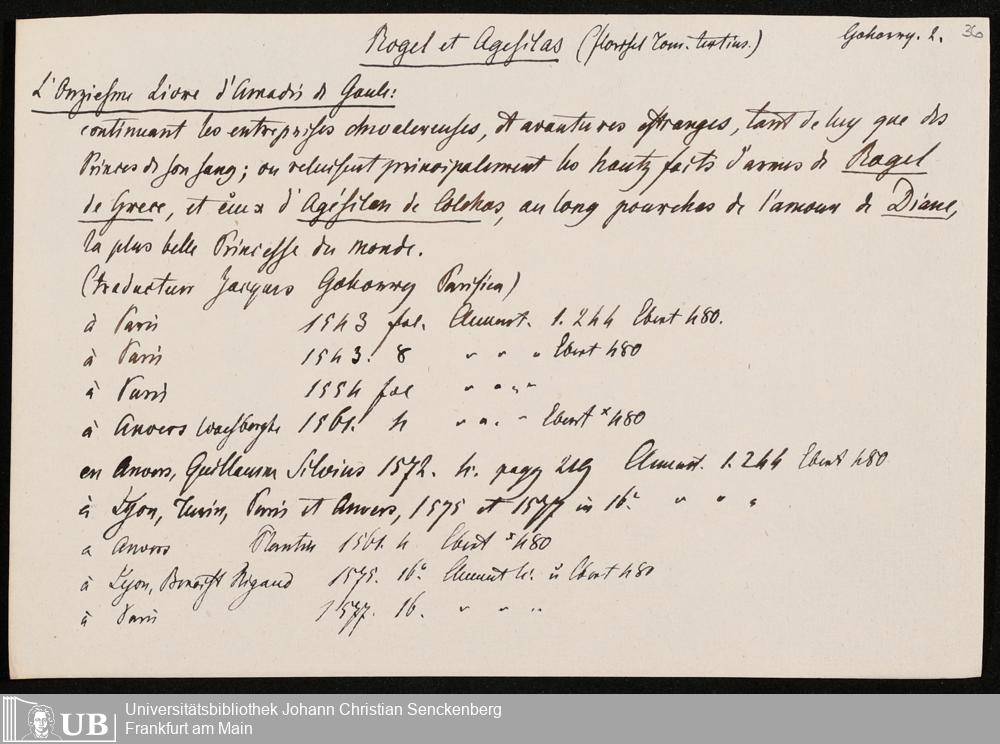 Rogel et Agesilas (florisel Tom. tertius.) Gohorry. 2. 36
L'Onziesme Livre d'Amadis de Gaule:
continuant les entreprises chevalereuses, et avantures estranges, tant de luy que des
Princes de son sang; ou reluisent principalement les hautz faits d'armes de Rogel
de Grece, et ceux d'Agésilan de Colchos, au long pourchas de l'amour de Diane,
la plus belle Princesse du monde.
(traducteur Jacques Gohorrey Parisien)
à Paris 1543 fol. 1.244 Ebert 480.
à Paris 1543. 8 " " " Ebert 480
à Paris 1554 fol " " " "
à Anvers Waesberghe 1561. 4 " " " Ebert x 480
en Anvers, Guillaume Silvius 1572. 4. pagg 219 1.244 Ebert 480
à Lyon, Turin, Paris et Anvers, 1575 et 1577 in 16° " " "
a Anvers Plantin 1561. 4 Ebert x 480
à Lyon, Benoist Rigaud 1575. 16° u Ebert 480
à Paris 1577. 16. " " "
UB Universitätsbibliothek Johann Christian Senckenberg
Frankfurt am Main